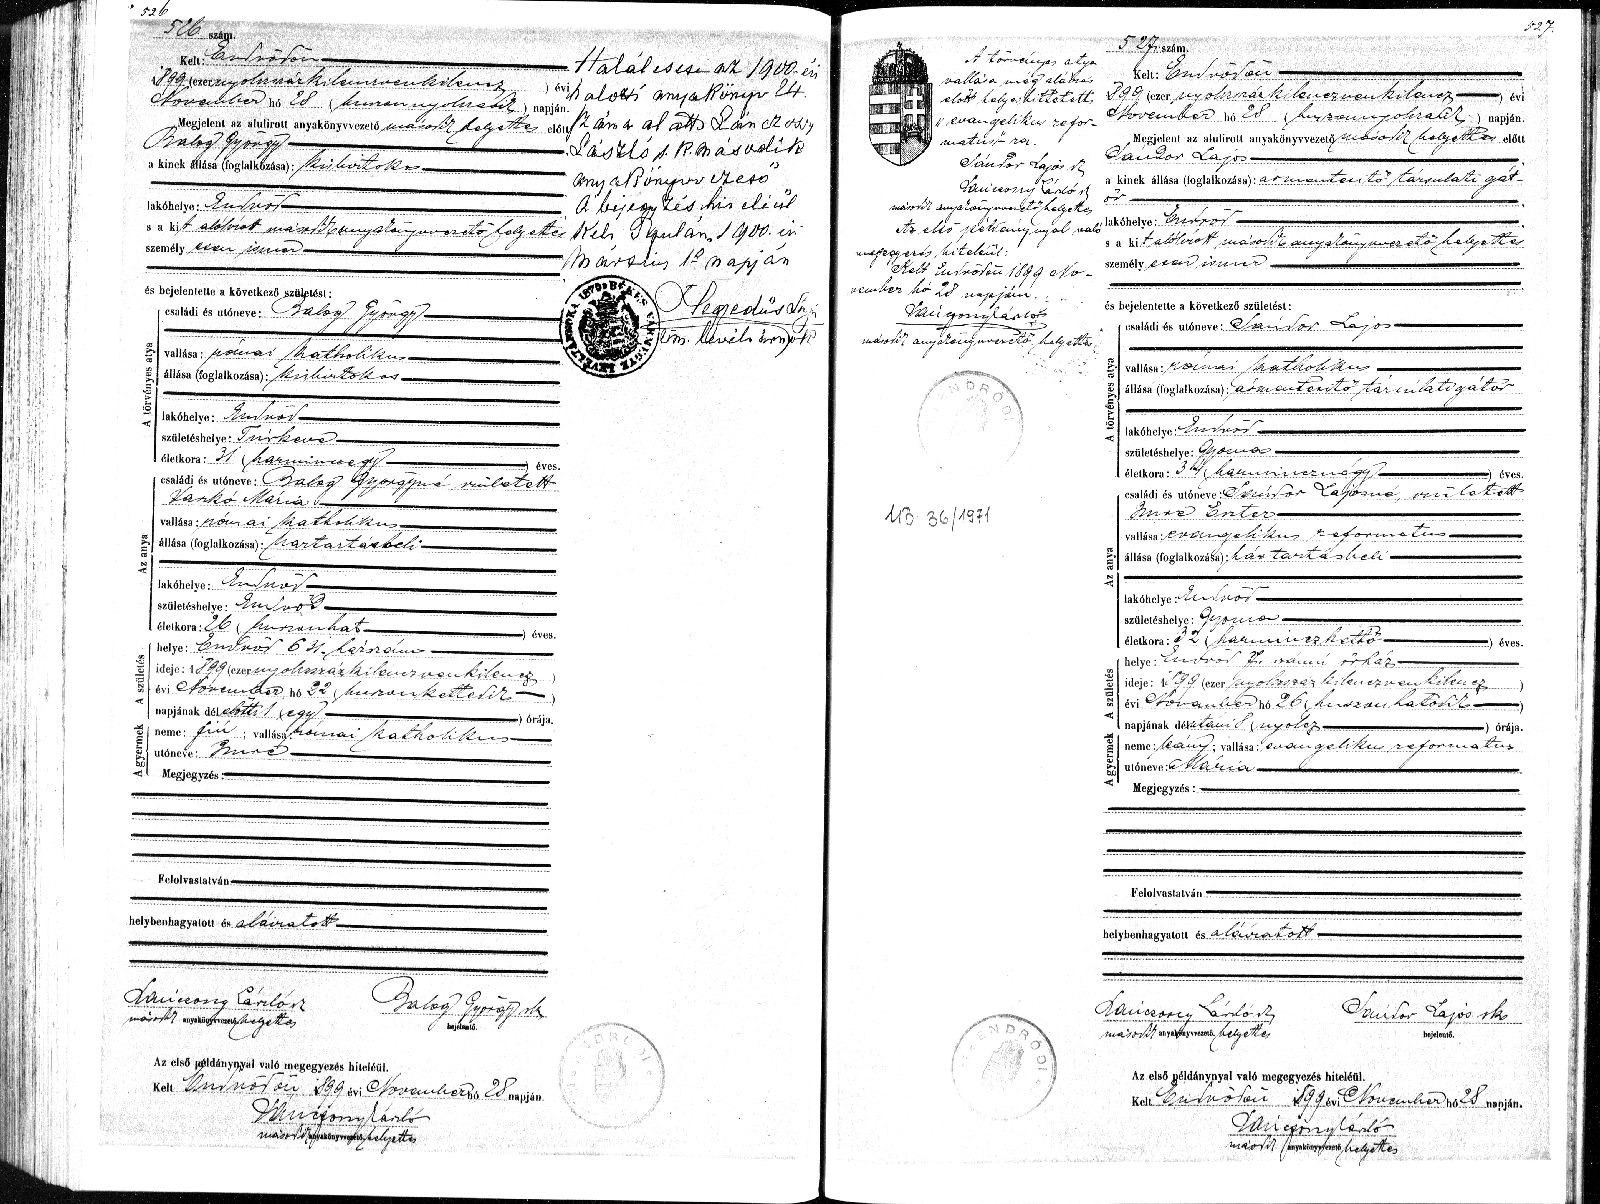 526
526 szám.
Kelt: Endrődön
1899 (ezer nyolcszázkilenczvenkilencz ) évi
November hó 28 (huszonnyolczadik) napján.
Megjelent az alulirott anyakönyvvezető másodh helyettes előtt
Balog György
a kinek állása (foglalkozása): kisbirtokos
lakóhelye: Endrőd
s a kit alólirott másodh anyakönyvvezető helyettes
személyesen ismer
és bejelentette a következő születést:
A törvényes atya
családi és utóneve: Balog György
vallása: római katholikus
állása (foglalkozása): kisbirtokos
lakóhelye: Endrőd
születéshelye: Túrkeve
életkora: 31 (harminczegy ) éves.
Az anya
családi és utóneve: Balog Györgyné született
Varkó Mária
vallása: római katholikus
állása (foglalkozása): háztartásbeli
lakóhelye: Endrőd
születéshelye: Endrőd
életkora: 26 (huszonhat ) éves.
A születés
helye: Endrőd 631. házszám
ideje: 1899 (ezer nyolcszázkilenczvenkilencz )
évi November hó 22 (huszonkettedik )
napjának délelőtti 1 (egy ) órája.
A gyermek
neme: fiú ; vallása: római katholikus
utóneve: Imre
Megjegyzés:
Felolvastatván
helybenhagyatott és aláiratott
másodh anyakönyvvezető helyettes
Balog György sk
bejelentő.
Az első példánynyal való megegyezés hiteléül.
Kelt Endrődön 1899 évi November hó 28 napján.
másodh anyakönyvvezető helyettes
Halálesete az 1900. évi
halotti anyakönyv 24.
száma alatt
László s. k. második
anyakönyvvezető
A bejegyzés hiteléül
Kelt Gyulán, 1900. évi
Március 1º napján
Hegedűs
vm. levéltárnok
BÉKÉS VÁRMEGYE LEVÉLTÁRNOKA 1879
ENDRŐDI
527.
527. szám.
Kelt: Endrődön
1899 (ezer nyolcszázkilenczvenkilencz ) évi
November hó 28 (huszonnyolczadik ) napján.
Megjelent az alulirott anyakönyvvezető másodh helyettes előtt
Sándor Lajos
a kinek állása (foglalkozása): ármentesítő társulati gát-
őr
lakóhelye: Endrőd
s a kit alólirott másodh anyakönyvvezető helyettes
személyesen ismer
és bejelentette a következő születést:
A törvényes atya
családi és utóneve: Sándor Lajos
vallása: római katholikus
állása (foglalkozása): ármentesítő társulati gátőr
lakóhelye: Endrőd
születéshelye: Gyoma
életkora: 34 (harmincznégy ) éves.
Az anya
családi és utóneve: Sándor Lajosné, született
Imre Eszter
vallása: evangelikus reformatus
állása (foglalkozása): háztartásbeli
lakóhelye: Endrőd
születéshelye: Gyoma
életkora: 32 (harminczkettő ) éves.
A születés
helye: Endrőd 7. számú őrház
ideje: 1899 (ezer nyolcszázkilenczvenkilencz )
évi November hó 26 (huszonhatodik )
napjának délutáni 8 (nyolcz ) órája.
A gyermek
neme: leány ; vallása: evangelikus reformatus
utóneve: Mária
Megjegyzés:
Felolvastatván
helybenhagyatott és aláiratott
másodh anyakönyvvezető helyettes
Sándor Lajos sk
bejelentő.
Az első példánynyal való megegyezés hiteléül.
Kelt Endrődön 1899 évi November hó 28 napján.
másodh anyakönyvvezető helyettes
A törvényes atya
vallása még aláírás
előtt helyesbíttetett
evangelikus refor-
matus-ra.
Sándor Lajos sk
másodh anyakönyvvezető helyettes
Az első példánynyal való
megegyezés hiteléül:
Kelt Endrődön 1899 No-
vember hó 28 napján.
másodh anyakönyvvezető helyettes
ENDRŐDI
MB 36/1971
ENDRŐDI